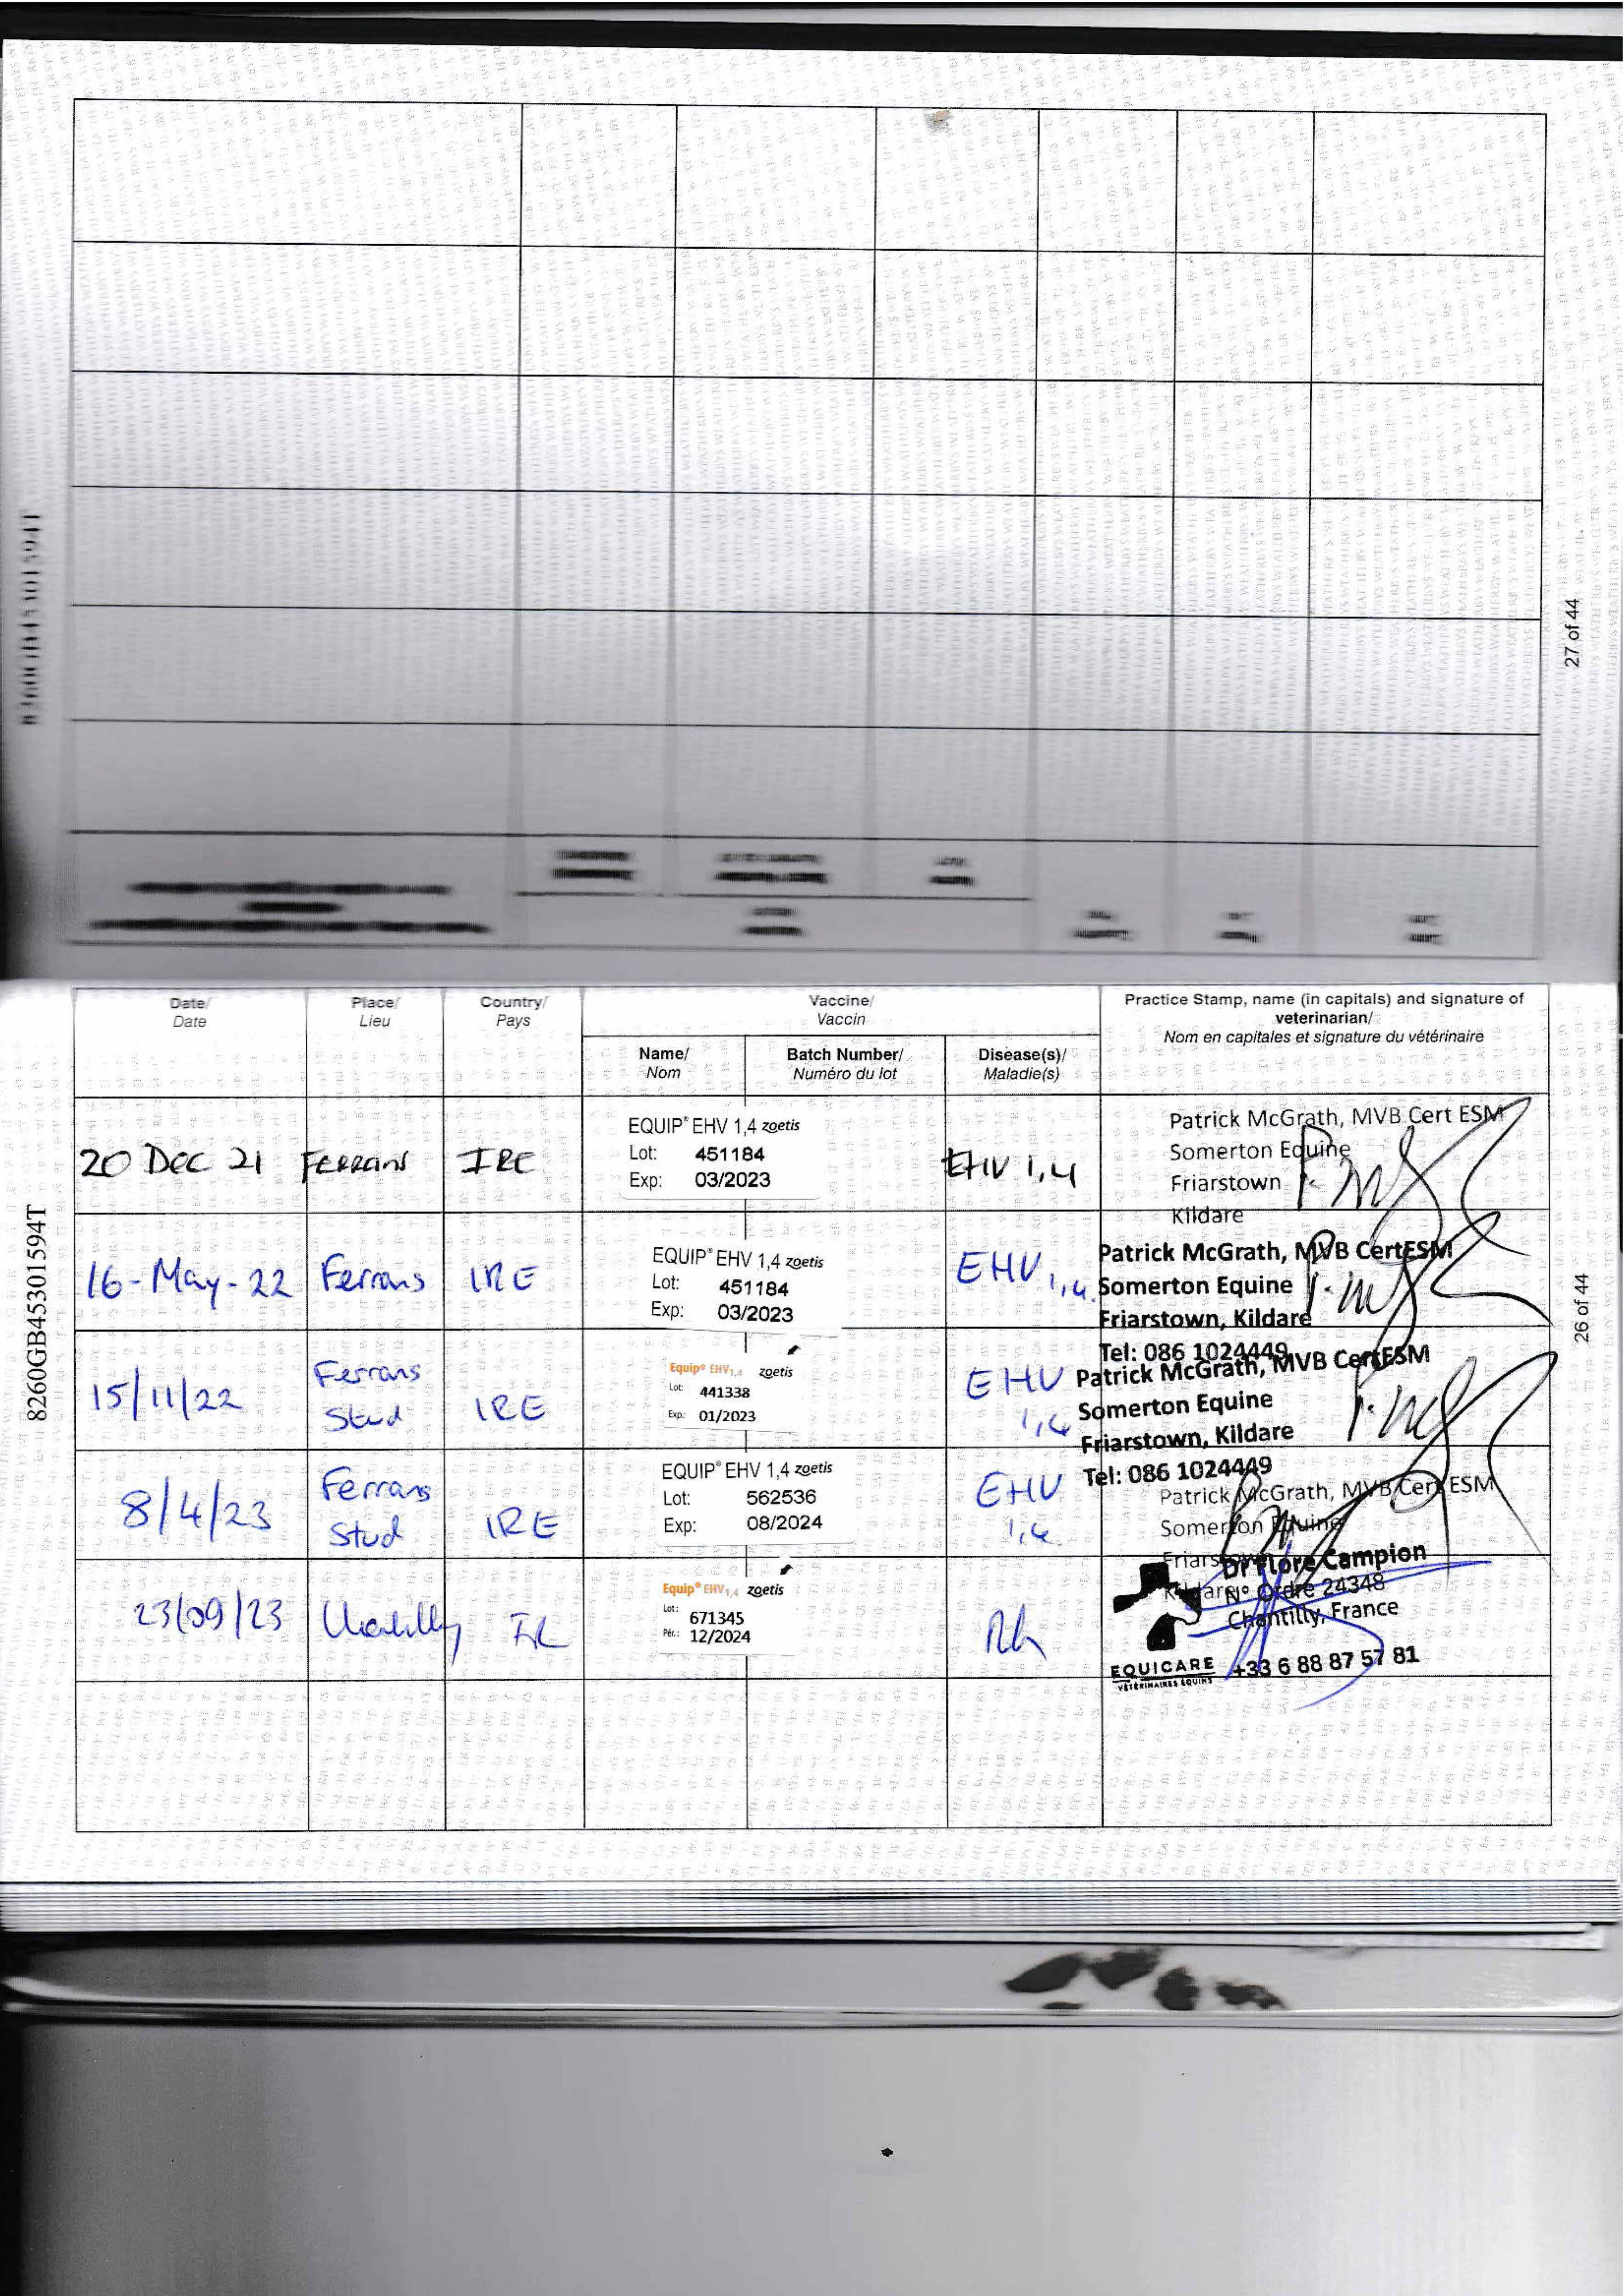 27 of 44
Date/
Date
Place/
Lieu
Country/
Pays
Vaccine/
Vaccin
Name/
Nom
Batch Number/
Numéro du lot
Disease(s)/
Maladie(s)
Practice Stamp, name (in capitals) and signature of
veterinarian/
Nom en capitales et signature du vétérinaire
20 Dec 21
Ferrans
IRE
EQUIP® EHV 1,4 zoetis
Lot: 451184
Exp: 03/2023
EHV 1,4
Patrick McGrath, MVB Cert ESM
Somerton Equine
Friarstown
Kildare
16-May-22
Ferrans
IRE
EQUIP® EHV 1,4 zoetis
Lot: 451184
Exp: 03/2023
EHV 1,4.
Patrick McGrath, MVB CertESM
Somerton Equine
Friarstown, Kildare
Tel: 086 1024449
15/11/22
Ferrans
Stud
IRE
Equip® EHV1,4 zoetis
Lot: 441338
Exp: 01/2023
EHV
1,4
Patrick McGrath, MVB CertESM
Somerton Equine
Friarstown, Kildare
Tel: 086 1024449
8/4/23
Ferrans
Stud
IRE
EQUIP® EHV 1,4 zoetis
Lot: 562536
Exp: 08/2024
EHV
1,4
Patrick McGrath, MVB Cert ESM
Somerton Equine
Friarstown
Kildare
23/09/23
Equip® EHV1,4 zoetis
Lot: 671345
Pér.: 12/2024
Rh
Dr Flore Campion
N° Ordre 24348
Chantilly, France
EQUICARE
VÉTÉRINAIRES ÉQUINS
+33 6 88 87 57 81
8260GB45301594T
26 of 44